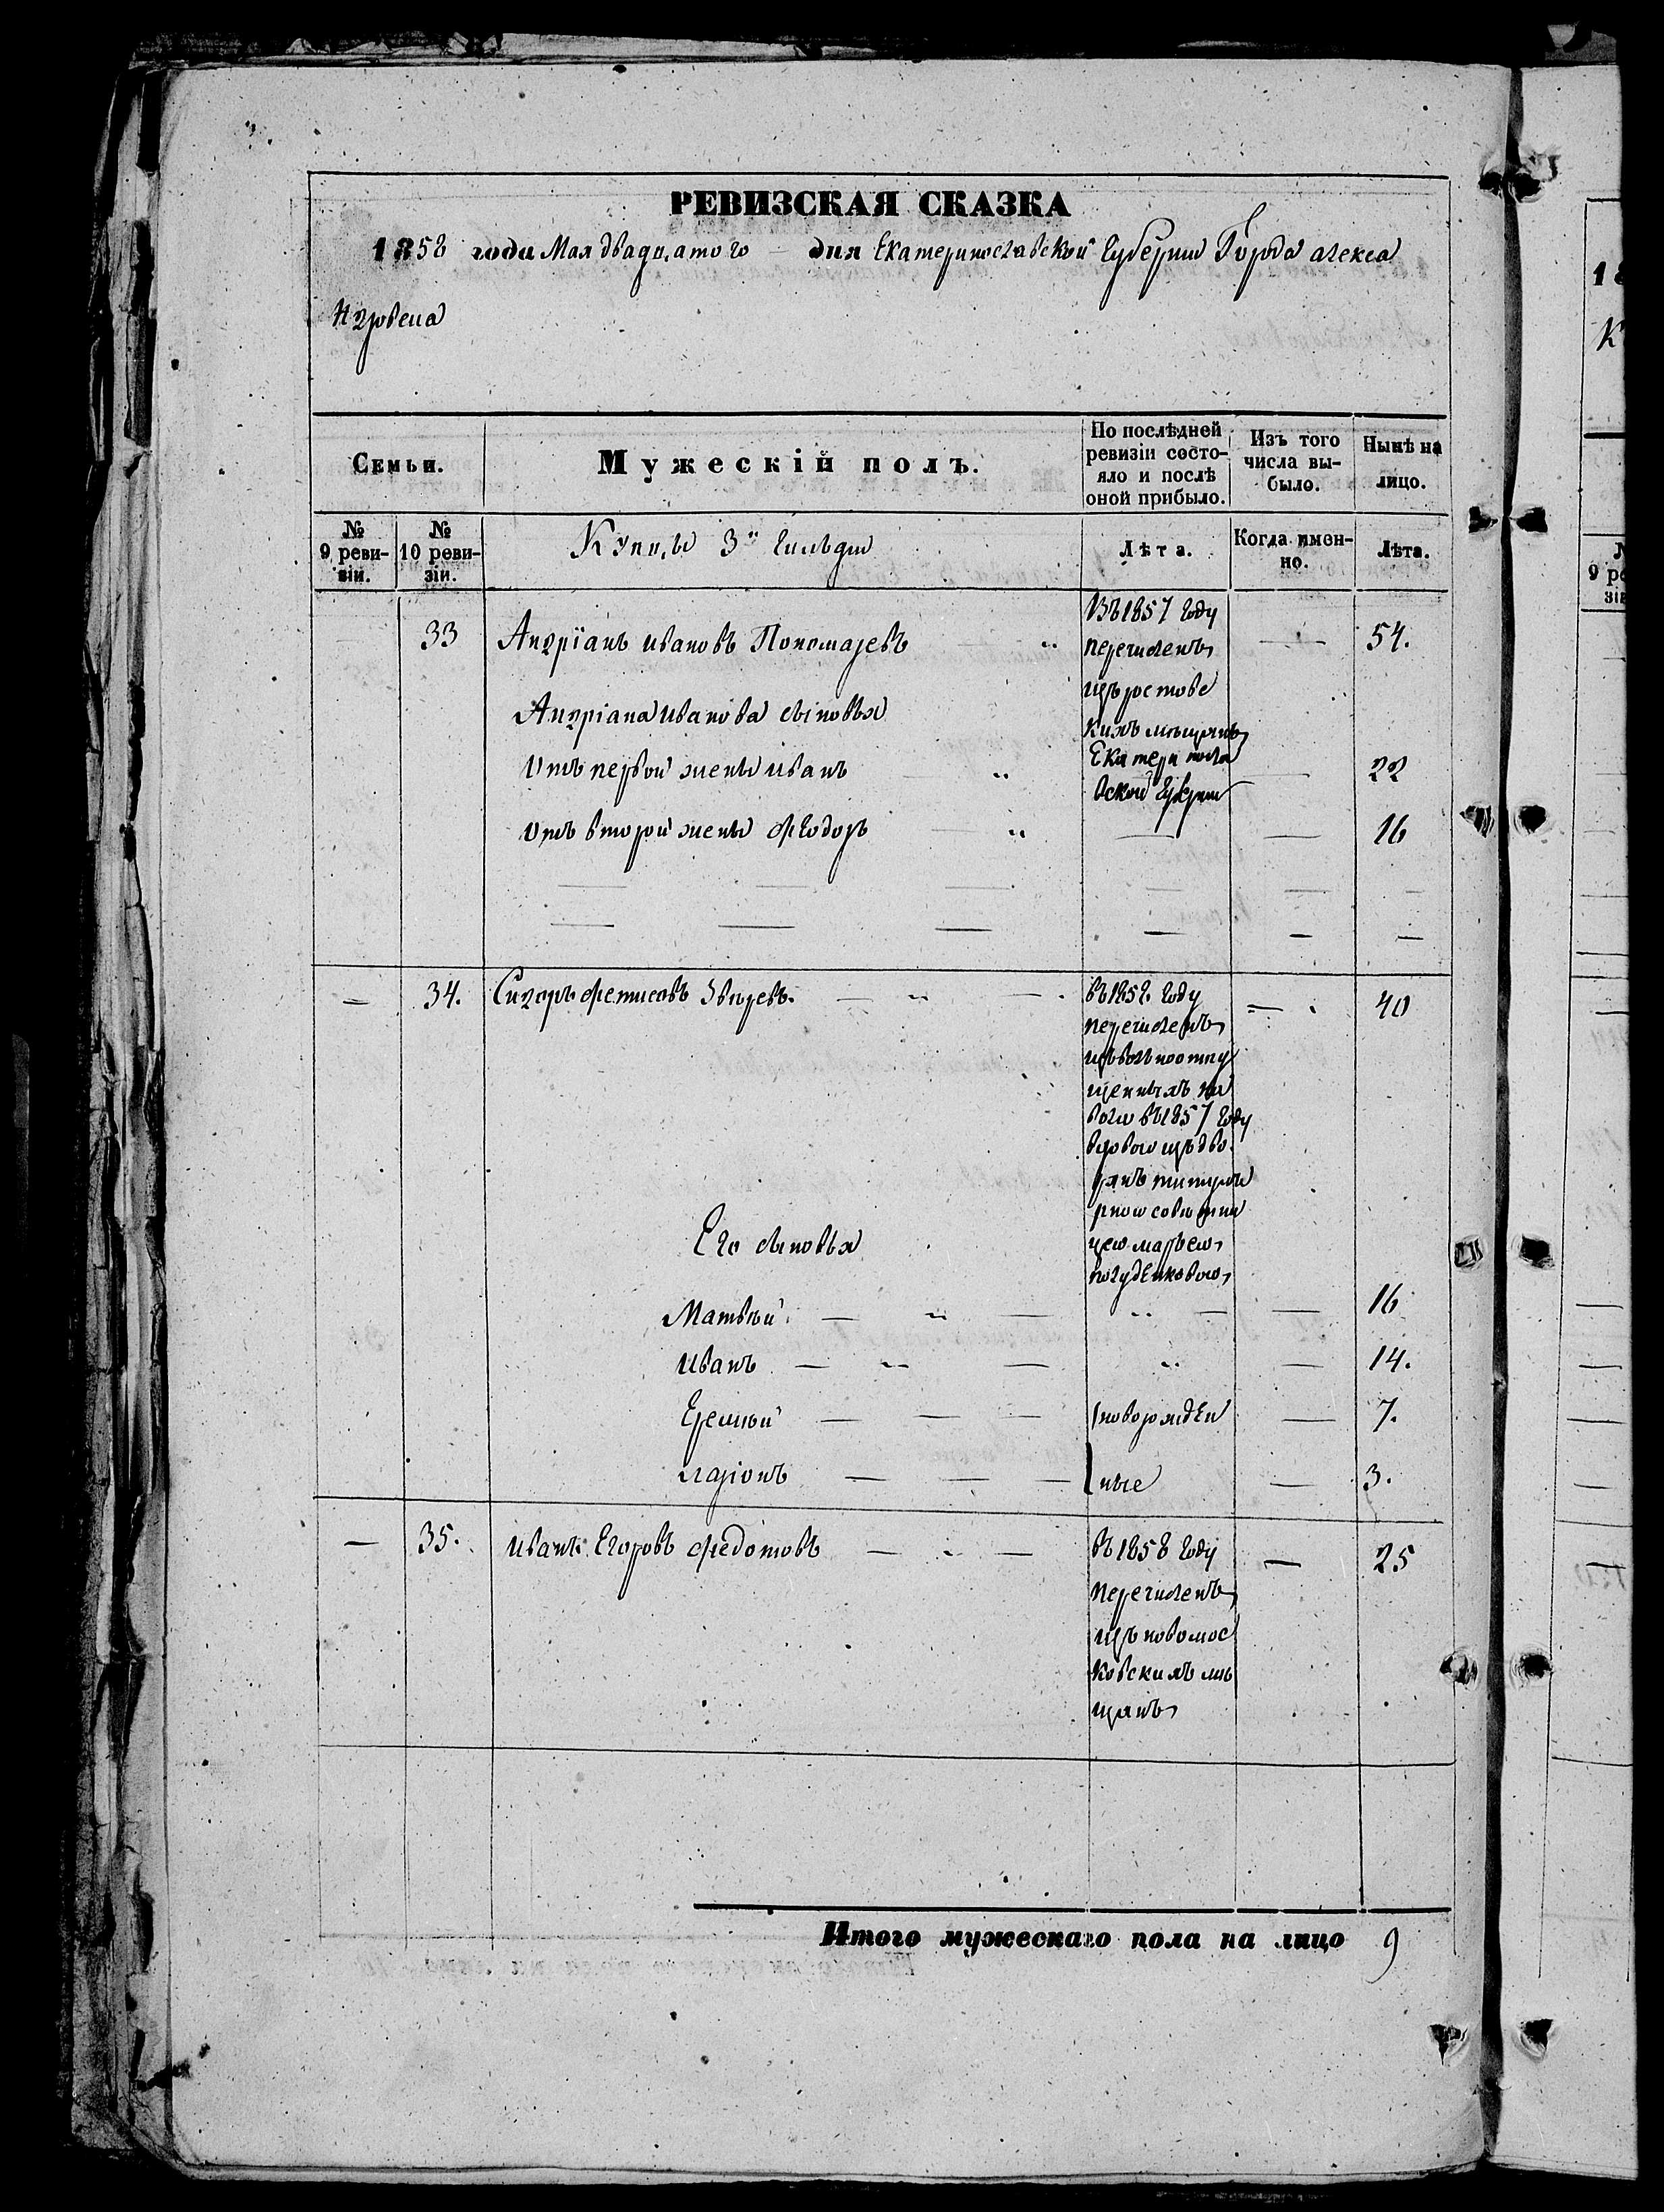 РЕВИЗСКАЯ СКАЗКА
1858 года Мая двадцатого — дня Екатеринославской Губернии Города алекса
ндровска
Семьи.
Мужескій полъ.
По послѣдней ревизіи состо-
яло и послѣ
оной прибыло.
Изъ того
числа вы-
было.
Нынѣ на
лицо.
№
9 реви-
зіи.
№
10 реви-
зіи.
Купцы 3й Гильдіи
Лѣта.
Когда имен-
но.
Лѣта.
33 Андріанъ ивановъ Пономаревъ „ — 54.
Въ 1857 году
перечисленъ
изъ ростовс
кихъ мѣщанъ
Екатериносла
вской Губерніи
Андріана Иванова сыновья
Отъ первой жены иванъ „ — 22
Отъ второй жены Феодоръ „ — — 16
— 34. Сидоръ Фетисовъ Звѣревъ. — „ — — 40
въ 1858 году
перечисленъ
изъ вольноотпу
щенныхъ на
волю въ 1857 году
вдовою изъ дво
рянъ титуля
рною совѣтни
цею марьею
полуденковою
Его сыновья
Матвѣй — „ — „ — — 16
иванъ — „ — „ — 14.
Еремѣй — — — новорожден — 7.
ларіонъ — — — ные — 3.
— 35. иванъ Егоровъ Федотовъ — „ — — 25
въ 1858 году
перечисленъ
изъ новомос
ковскихъ мѣ
щанъ
Итого мужескаго пола на лицо 9
18
К
№
9 ре
зіи